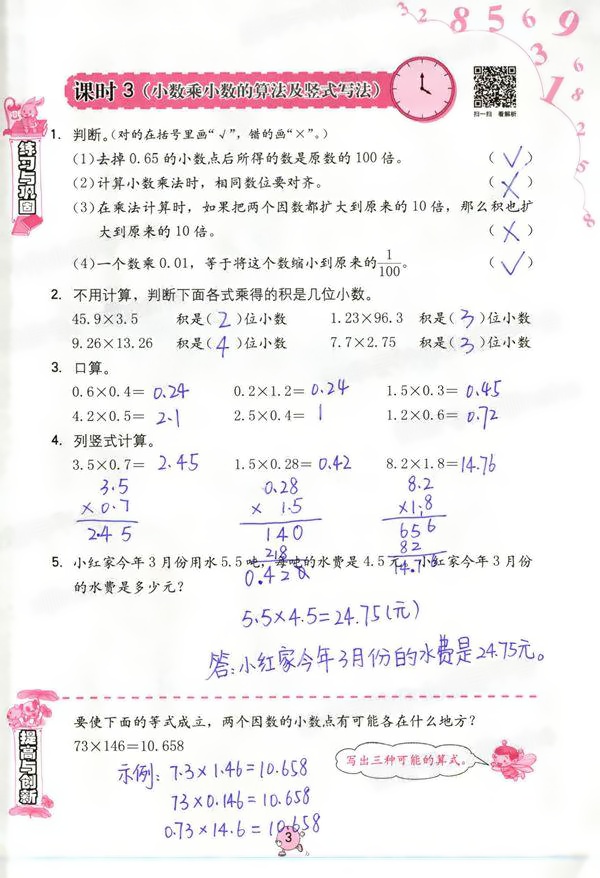 3 2 8 5 6 9 3 1 8 2 6 5 8
课时 3（小数乘小数的算法及竖式写法）
扫一扫 看解析
练习与巩固
1. 判断。(对的在括号里画“√”，错的画“×”。)
(1)去掉 0.65 的小数点后所得的数是原数的 100 倍。 (√)
(2)计算小数乘法时，相同数位要对齐。 (×)
(3)在乘法计算时，如果把两个因数都扩大到原来的 10 倍，那么积也扩
大到原来的 10 倍。 (×)
(4)一个数乘 0.01，等于将这个数缩小到原来的1/100。 (√)
2. 不用计算，判断下面各式乘得的积是几位小数。
45.9×3.5 积是(2)位小数 1.23×96.3 积是(3)位小数
9.26×13.26 积是(4)位小数 7.7×2.75 积是(3)位小数
3. 口算。
0.6×0.4= 0.24 0.2×1.2= 0.24 1.5×0.3= 0.45
4.2×0.5= 2.1 2.5×0.4= 1 1.2×0.6= 0.72
4. 列竖式计算。
3.5×0.7= 2.45 1.5×0.28= 0.42 8.2×1.8=14.76
3.5 0.28 8.2
×0.7 ×1.5 ×1.8
2.45 140 656
28 82
0.420 14.76
5. 小红家今年 3 月份用水 5.5 吨，每吨的水费是 4.5 元，小红家今年 3 月份
的水费是多少元？
5.5×4.5=24.75(元)
答:小红家今年3月份的水费是24.75元。
提高与创新
要使下面的等式成立，两个因数的小数点有可能各在什么地方？
73×146=10.658
写出三种可能的算式。
示例: 7.3×1.46=10.658
73×0.146=10.658
0.73×14.6=10.658
3